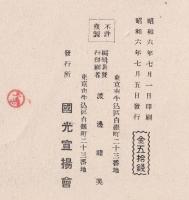 昭和六年七月一日印刷
昭和六年七月五日發行
金五拾錢
不許
複製
編輯兼發
行印刷者
東京市牛込區白銀町二十三番地
渡邊
發行所
東京市牛込區白銀町二十三番地
國光宣揚會